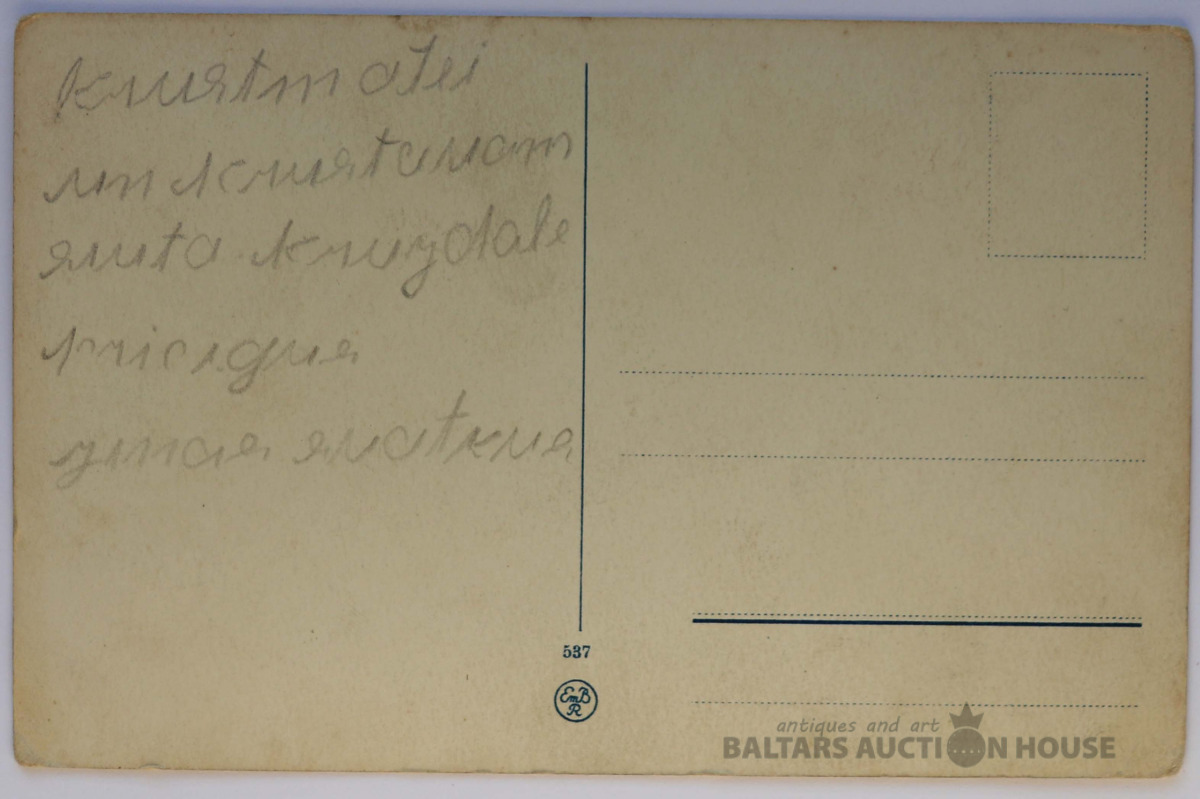 Krustmatei
un krustavam
suta kruzdale
pricigus
zmas svatkus
537
EmB
R
antiques and art
BALTARS AUCTION HOUSE